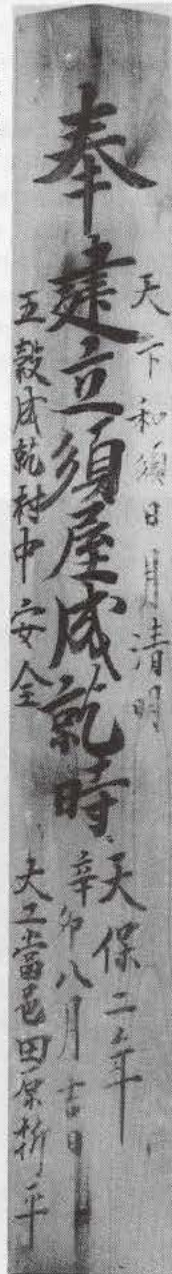 奉建立須屋成就時
天下和順日月清明
五穀成就村中安全
天保二年
辛卯八月吉日
大工當邑田原平